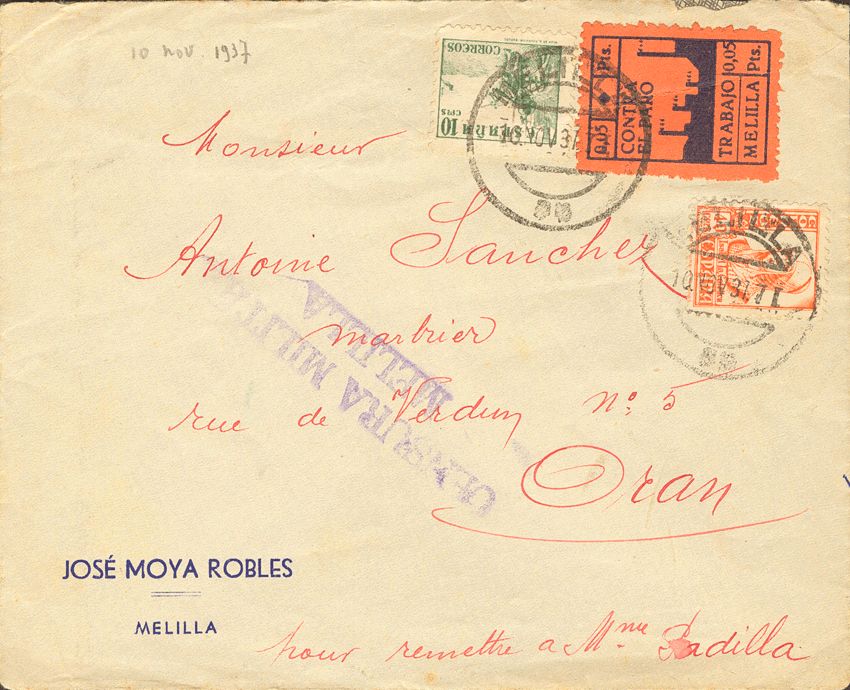 10 nov. 1937
CORREOS
10 CTS
0,05 Pts.
CONTRA
EL PARO
TRABAJO 0,05
MELILLA Pts.
10.NOV 37.7
MELILLA
10.NOV 37.7
Monsieur
Antoine Sanchez
marbrier
rue de Verdun Nº. 5
Oran
CENSURA MILITAR
MELILLA
JOSÉ MOYA ROBLES
MELILLA
pour remettre a Mme Padilla